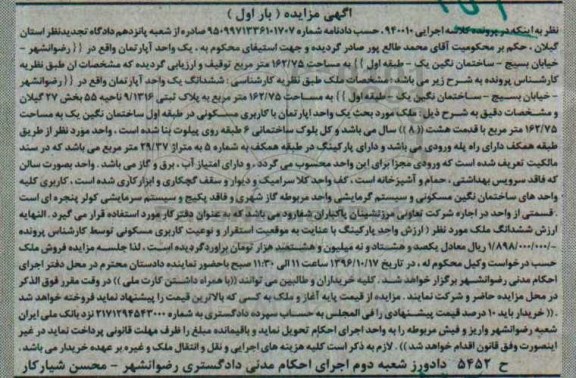 آگهی مزایده ( بار اول )
نظر به اینکه در پرونده کلاسه اجرایی ۹۴۰۰۱۰ ، حسب دادنامه شماره ۹۵۰۹۹۷۱۳۳۶۱۰۱۷۰۷ صادره از شعبه پانزدهم دادگاه تجدیدنظر استان
گیلان ، حکم بر محکومیت آقای محمد طالع پور صادر گردیده و جهت استیفای محکوم به ، یک واحد آپارتمان واقع در {{ رضوانشهر -
خیابان بسیج - ساختمان نگین یک - طبقه اول }} به مساحت ۱۶۲/۷۵ متر مربع توقیف و ارزیابی گردیده که مشخصات ان طبق نظریه
کارشناس پرونده به شرح زیر می باشد : مشخصات ملک طبق نظریه کارشناسی : ششدانگ یک واحد آپارتمان واقع در {{ رضوانشهر
- خیابان بسیج - ساختمان نگین یک - طبقه اول }} به مساحت ۱۶۲/۷۵ متر مربع به پلاک ثبتی ۹/۱۳۱۶ ناحیه ۵۵ بخش ۲۷ گیلان
و مشخصات دقیق به شرح ذیل : ملک مورد بحث یک واحد اپارتمان با کاربری مسکونی در طبقه اول ساختمان نگین یک به مساحت
۱۶۲/۷۵ متر مربع با قدمت هشت (( ۸ )) سال می باشد و کل بلوک ساختمانی ۶ طبقه روی پیلوت بنا شده است . واحد مورد نظر از طریق
طبقه همکف دارای راه پله ورودی می باشد و دارای پارکینگ در طبقه همکف به شماره ۵ به متراژ ۲۹/۳۷ متر مربع می باشد که در سند
مالکیت تعریف شده است که ورودی مجزا برای این واحد محسوب می گردد ، و دارای امتیاز آب ، برق و گاز می باشد . واحد بصورت سالن
که فاقد سرویس بهداشتی ، حمام و آشپزخانه است ، کف واحد کلا سرامیک و دیوار و سقف گچکاری و ابزارکاری شده است ، کاربری کلیه
واحد های ساختمان نگین مسکونی و سیستم گرمایشی واحد مربوطه گاز شهری و فاقد پکیج و سیستم سرمایشی کولر پنجره ای است
. قسمتی از واحد در اجاره شرکت تعاونی مرزنشینان پاکباران شفارود می باشد که به عنوان دفتر کار مورد استفاده قرار می گیرد . النهایه
ارزش ششدانگ ملک مورد نظر ( ارزش واحد پارکینگ با عنایت به موقعیت استقرار و نوعیت کاربری مسکونی توسط کارشناس پرونده
۱/۸۹۸/۰۰۰/۰۰۰/- ریال معادل یکصد و هشتاد و نه میلیون و هشتصد هزار تومان براورد گردیده است . لذا جلسه مزایده فروش ملک
حسب درخواست وکیل محکوم له ، در تاریخ ۱۳۹۶/۱۰/۱۷ ساعت ۱۱ الی ۱۱:۳۰ صبح باحضور نماینده دادستان محترم در محل دفتر اجرای
احکام مدنی رضوانشهر برگزار خواهد شد . کلیه خریداران و طالبین می توانند ((با همراه داشتن کارت ملی )) در وقت مقرر فوق الذکر
در محل مزایده حاضر و شرکت نمایند . مزایده از قیمت پایه آغاز و ملک به کسی که بالاترین قیمت را پیشنهاد نماید فروخته خواهد شد
. (( خریدار باید ۱۰ درصد قیمت پیشنهادی را فی المجلس به حساب سپرده دادگستری به شماره ۲۱۷۱۲۹۴۵۴۳۰۰۰ نزد بانک ملی ایران
شعبه رضوانشهر واریز و فیش مربوطه را به واحد اجرای احکام تحویل نماید و باقیمانده مبلغ را ظرف مهلت قانونی پرداخت نماید در غیر
اینصورت وفق قانون اقدام خواهد شد)) . لازم به ذکر است کلیه هزینه های اجرایی و نقل و انتقال ملک و غیره بر عهده خریدار می باشد .
ح ۵۴۵۲ دادورز شعبه دوم اجرای احکام مدنی دادگستری رضوانشهر - محسن شیارکار